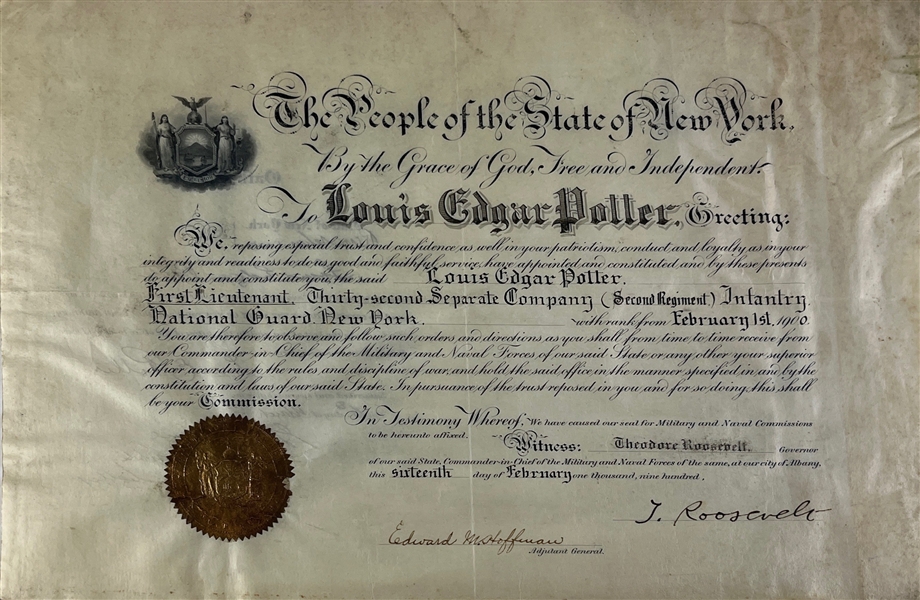 The People of the State of New York.
By the Grace of God, Free and Independent:
To Louis Edgar Potter, Greeting:
We, reposing especial trust and confidence as well in your patriotism, conduct and loyalty as in your
integrity and readiness to do us good and faithful service, have appointed and constituted and by these presents
do appoint and constitute you, the said Louis Edgar Potter,
First Lieutenant, Thirty-second Separate Company (Second Regiment) Infantry,
National Guard New York. with rank from February 1st, 1900.
You are therefore to observe and follow such orders and directions as you shall from time to time receive from
our Commander-in-Chief of the Military and Naval Forces of our said State or any other your superior
officer according to the rules and discipline of war, and hold the said office in the manner specified in and by the
constitution and laws of our said State. In pursuance of the trust reposed in you, and for so doing this shall
be your Commission.
In Testimony Whereof, We have caused our seal for Military and Naval Commissions
to be hereunto affixed. Witness: Theodore Roosevelt, Governor
of our said State, Commander-in-Chief of the Military and Naval Forces of the same, at our city of Albany,
this sixteenth day of February one thousand, nine hundred.
T. Roosevelt
Edward M. Hoffman
Adjutant General.